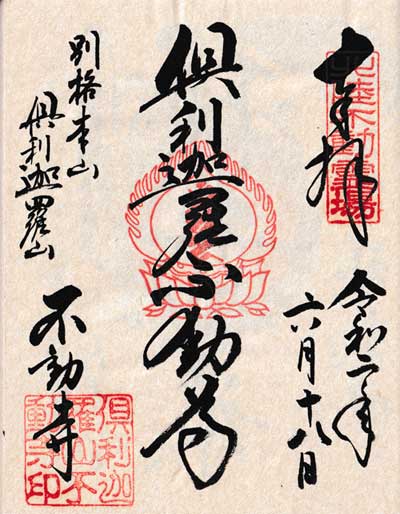 奉拝
令和二年
六月十八日
倶利迦羅不動尊
別格本山
倶利迦羅山
不動寺
北陸不動霊場
倶利迦
羅山不
動寺印